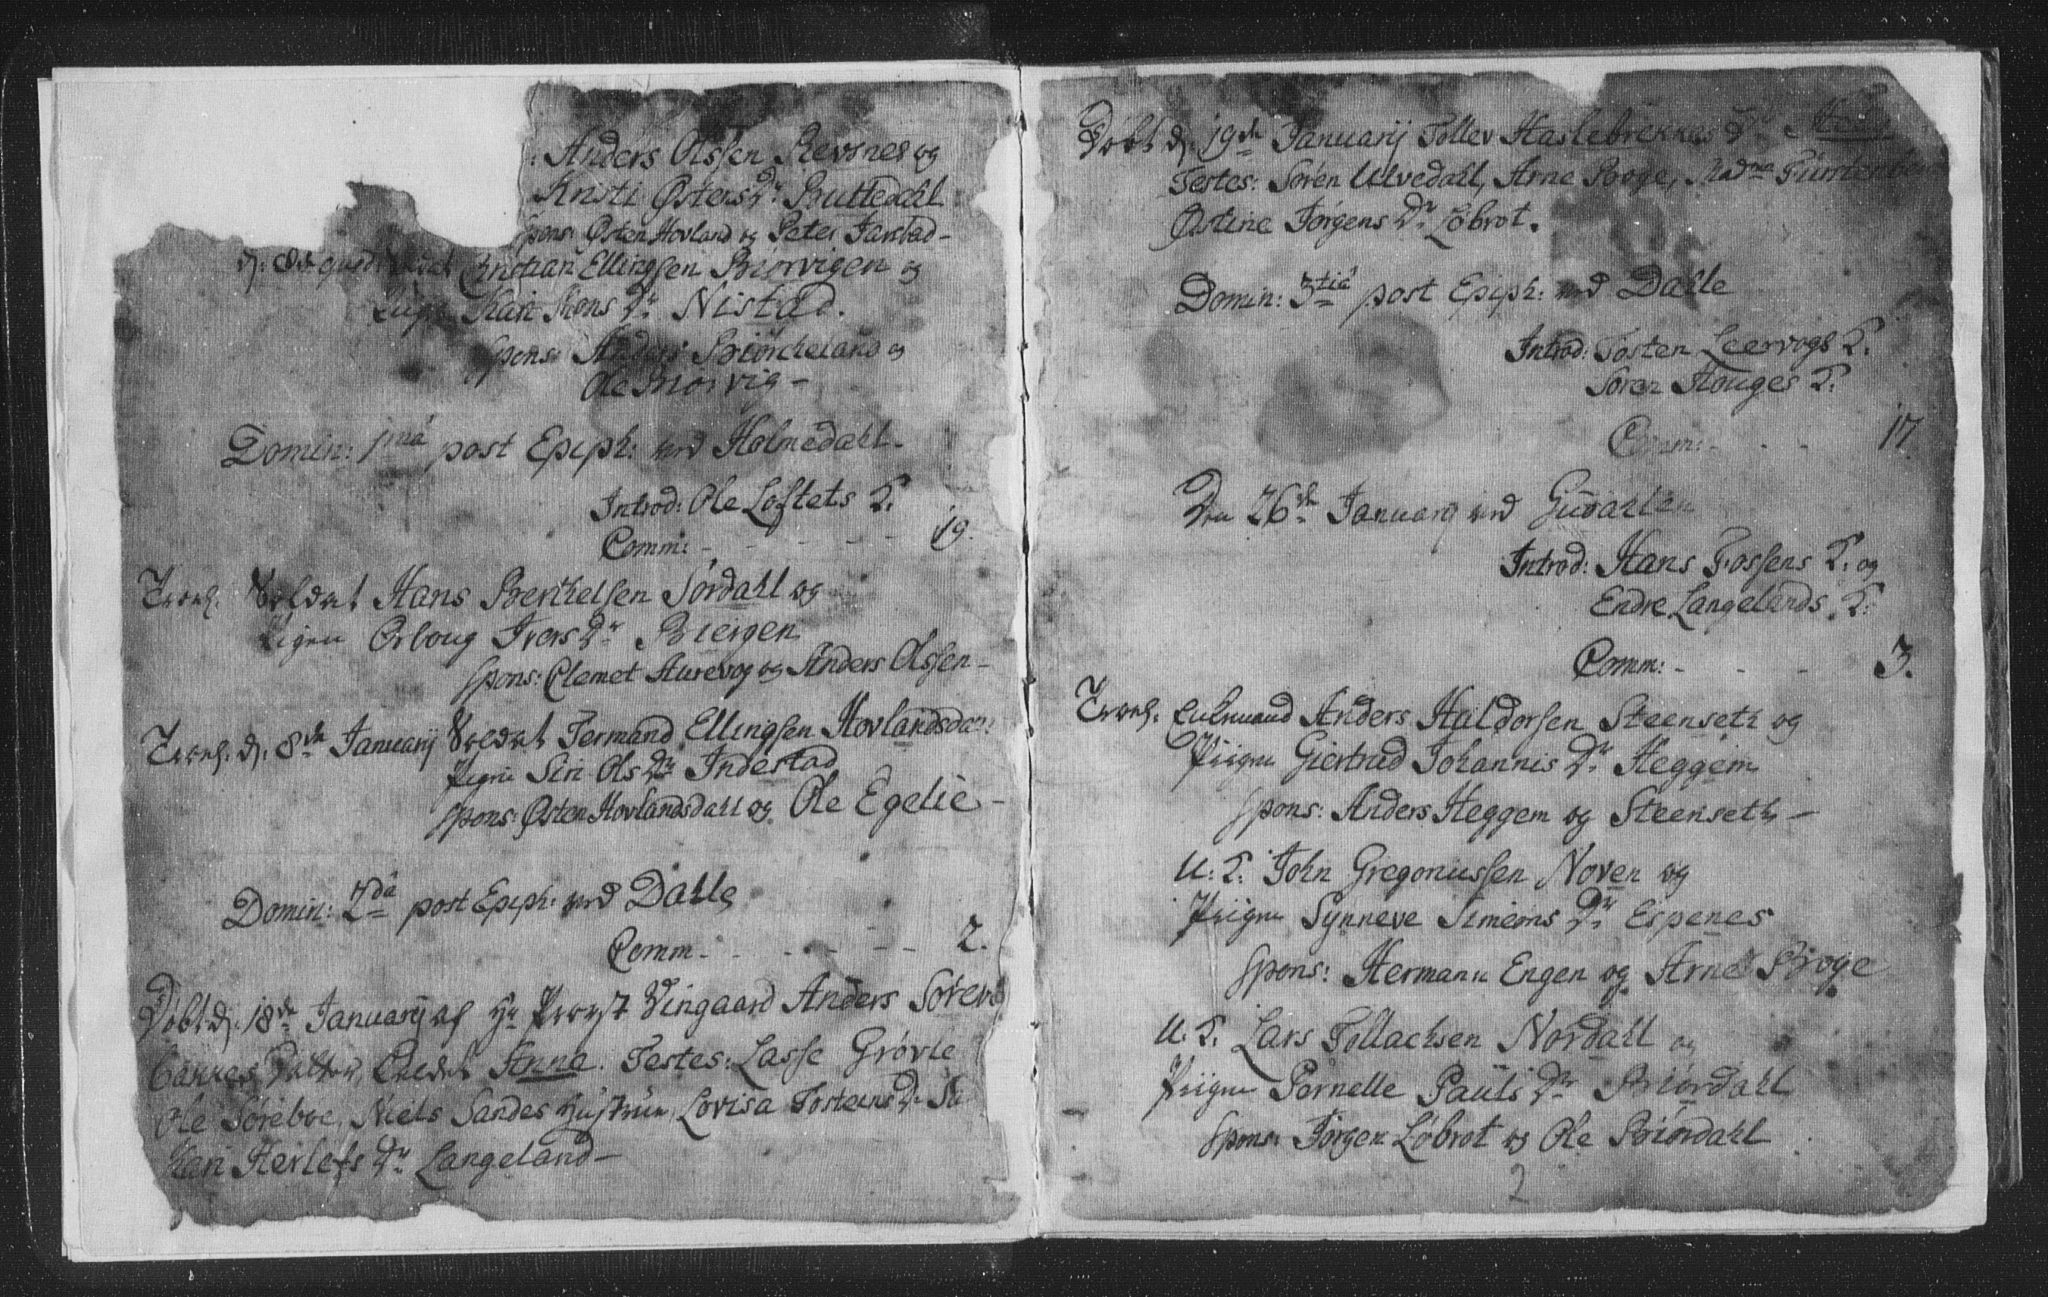 : Anders Olssen Revsnes og
Kristi Østens Dr Buttedahl
Spons: Østen Hovland og Peter Jarstad –
Christian Ellingsen Morvigen og
Kari Mons Dr Nistad.
Spons: Anders Biørcheland og
Ole Morvig –
Domin: 1má post Epiph: ved Holmedahl –
Introd: Ole Loftets K.
Comm: - - - - - 19.
Trol. Soldat Hans Berthelsen Sørdahl og
Pigen Orboug Ivers Dr Biergen
Spons: Clemet Aurevog og Anders Olssen –
Trol. d. 8de Januarij Soldat Fermand Ellingsen Hovlandsdal
Pigen Siri Ols Dr Indestad
Spons: Østen Hovlandsdahl og Ole Egelie –
Domin: 2dá post Epiph: ved Dahle
Comm. - - - - - 2.
Døbt d. 18de Januarij af Hr Provst Wingaard Anders Søren
Datter, kaldet Anne. Testes: Lasse Grøvle
Ole Søreboe, Niels Sandes Hustrue, Lovisa Tostens Dr
Kari Herlefs Dr Langeland –
Døbt d. 19de Januarij Tollev Haslebrekkes Dr
Testes: Søren Ulvedahl, Arne Boge, Madme Fürstenber
Østine Jørgens Dr Løbrot.
Domin: 3tiá post Epiph: ved Dahle
Introd: Tosten Leervogs K.
Søren Houges K.
Comm: - - - 17.
Den 26de Januarij ved Guddahlen
Introd: Hans Fossens K. og
Endre Langelands K.
Comm: - - - 3.
Trol. Enkemand Anders Haldorsen Steenseth og
Piigen Giertrud Johannis Dr Heggem
Spons: Anders Heggem og Steenseth –
U. K. John Gregoriussen Noven og
Piigen Synneve Simeons Dr Espenes
Spons: Hermann Engen og Arne Boge
U. K. Lars Tollachsen Nordahl og
Piigen Pernelle Pauls Dr Biørdahl
Spons: Jørgen Løbrot og Ole Biørdahl
2